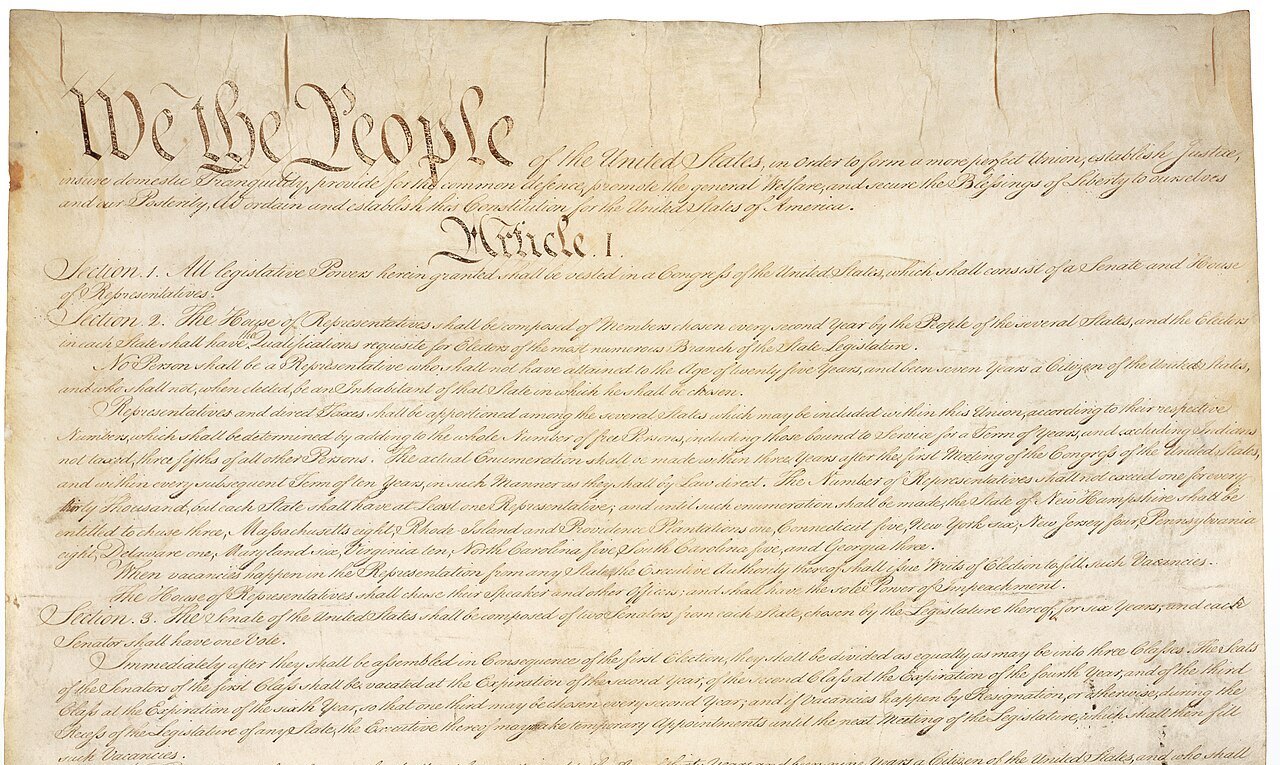 We the People of the United States, in Order to form a more perfect Union, establish Justice,
insure domestic Tranquility, provide for the common defence, promote the general Welfare, and secure the Blessings of Liberty to ourselves
and our Posterity, do ordain and establish this Constitution for the United States of America.
Article. I.
Section. 1. All legislative Powers herein granted shall be vested in a Congress of the United States, which shall consist of a Senate and House
of Representatives.
Section. 2. The House of Representatives shall be composed of Members chosen every second Year by the People of the several States, and the Electors
in each State shall have Qualifications requisite for Electors of the most numerous Branch of the State Legislature.
No Person shall be a Representative who shall not have attained to the Age of twenty five Years, and been seven Years a Citizen of the United States,
and who shall not, when elected, be an Inhabitant of that State in which he shall be chosen.
Representatives and direct Taxes shall be apportioned among the several States which may be included within this Union, according to their respective
Numbers, which shall be determined by adding to the whole Number of free Persons, including those bound to Service for a Term of Years, and excluding Indians
not taxed, three fifths of all other Persons. The actual Enumeration shall be made within three Years after the first Meeting of the Congress of the United States,
and within every subsequent Term of ten Years, in such Manner as they shall by Law direct. The Number of Representatives shall not exceed one for every
thirty Thousand, but each State shall have at Least one Representative; and until such enumeration shall be made, the State of New Hampshire shall be
entitled to chuse three, Massachusetts eight, Rhode Island and Providence Plantations one, Connecticut five, New York six, New Jersey four, Pennsylvania
eight, Delaware one, Maryland six, Virginia ten, North Carolina five, South Carolina five, and Georgia three.
When vacancies happen in the Representation from any State, the Executive Authority thereof shall issue Writs of Election to fill such Vacancies.
The House of Representatives shall chuse their Speaker and other Officers; and shall have the sole Power of Impeachment.
Section. 3. The Senate of the United States shall be composed of two Senators from each State, chosen by the Legislature thereof, for six Years; and each
Senator shall have one Vote.
Immediately after they shall be assembled in Consequence of the first Election, they shall be divided as equally as may be into three Classes. The Seats
of the Senators of the first Class shall be vacated at the Expiration of the second Year, of the second Class at the Expiration of the fourth Year, and of the third
Class at the Expiration of the sixth Year, so that one third may be chosen every second Year; and if Vacancies happen by Resignation, or otherwise, during the
Recess of the Legislature of any State, the Executive thereof may make temporary Appointments until the next Meeting of the Legislature, which shall then fill
such Vacancies.
Years and been nine Years a Citizen of the United States, and who shall